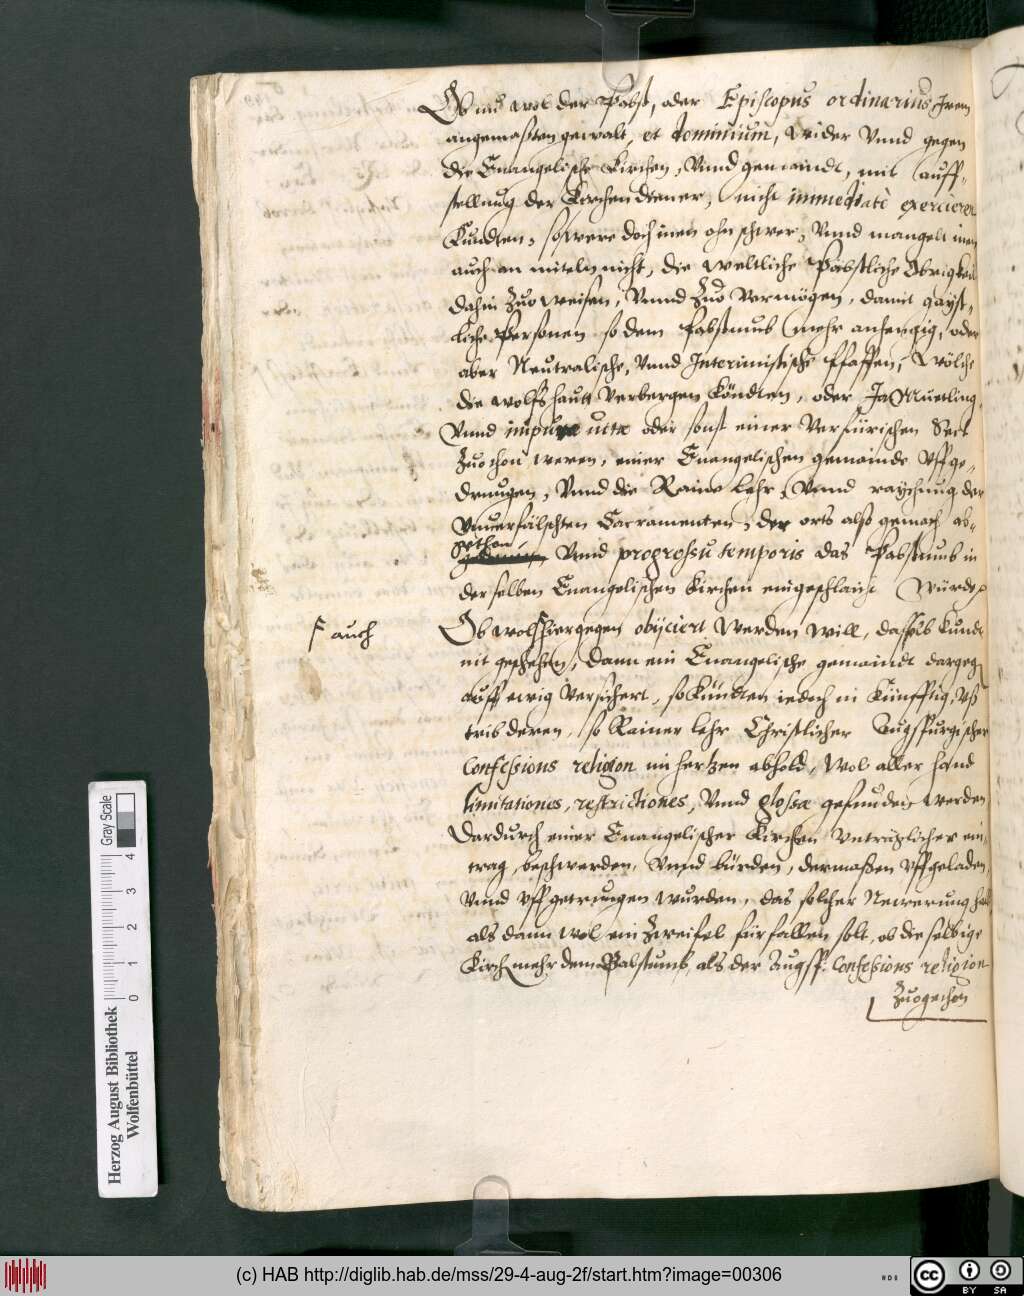 Ob nu wol der Pabst, oder Episcopus ordinarius Iren
angemaßten gewalt, et dominium, wider Vnnd gegen
die Euangelische Kirchen, Vnnd gemaindt, mit auff-
stellung der Kirchendiener, nicht immediatè exercieren
Kundten, so were doch inen ohnschwer, Vnnd mangelt inen
auch an miteln nicht, die weltliche Päbstliche Obrigkeit
dahin Zuo weisen, Vnnd Zuo Vermögen, damit gayst-
liche Personen so dem Pabstumb mehr anhengig, oder
aber Neutralische, Vnnd Interimistische Pfaffen, wölche
die wolffs haut Verbergen Köndten, oder
Vnnd oder sonst einer Verfürischen Sect
Zuothon weren, einer Euangelischen gemainde Vffge-
drungen, Vnnd die Raine Lehr, Vnnd raychung der
Vnuerfälschten Sacramenten, der orts alß gemach ab-
gethon, Vnnd progressu temporis das Pabstumb in
derselben Euangelischen Kirchen eingeschlaicht Würde.
auch
Ob wol hiergegen obijciert Werden will, dasselb kundt
nit geschehen, dann ein Euangelische gemaindt dargegen
auff ewig Versichert, so kündten iedoch in Künfftig, Vß
trib deren, so Rainer Lehr Christlicher Augspurgischer
Confessions religion im hertzen abhold, Wol aller hand
limitationes, restrictiones, Vnnd glossæ gefunden werden
Dardurch einer Euangelischer Kirchen Vnträglicher ein-
trag, beschwerden, Vnnd bürden, dermaßen Vffgeladen,
Vnnd Vffgetrungen wurden, das solcher Newerung halb
als dann wol ein Zweifel fürfallen solt, ob die selbige
Kirch mehr dem Pabstumb, als der Augsp. Confessions religion
Zuogethon
Herzog August Bibliothek
Wolfenbüttel
0 1 2 3 4
Gray Scale
(c) HAB http://diglib.hab.de/mss/29-4-aug-2f/start.htm?image=00306
cc BY SA